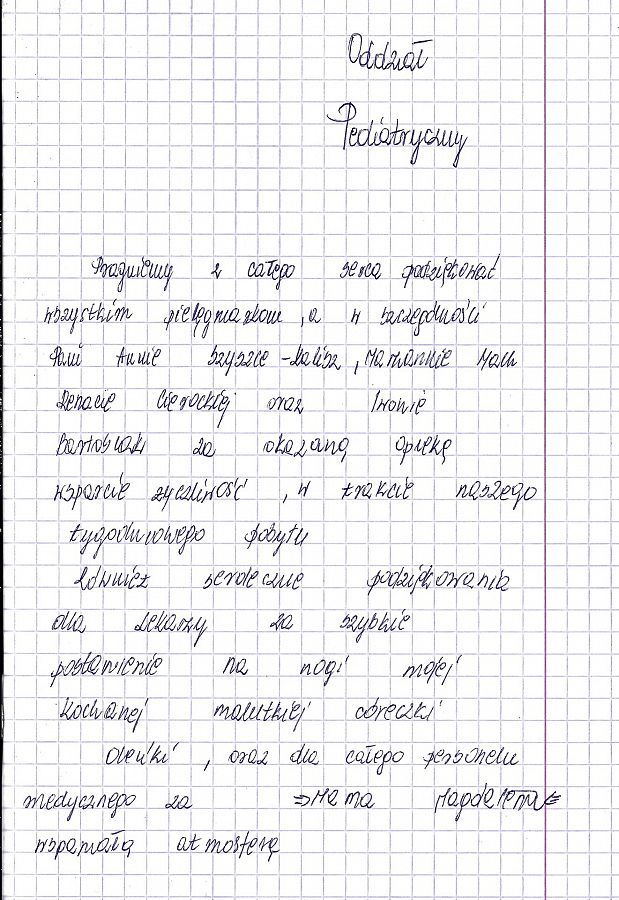 Oddział
Pediatryczny
Pragniemy z całego serca podziękować
wszystkim pielęgniarkom, a w szczególności
Pani Annie Szyszce-Kalisz, Mariannie
Renacie oraz Iwonie
za okazaną opiekę
wsparcie życzliwość, w trakcie naszego
tygodniowego pobytu
Również serdeczne podziękowania
dla lekarzy za szybkie
postawienie na nogi mojej
kochanej malutkiej córeczki
Oleńki, oraz dla całego personelu
medycznego za ⇒ Mama Magdalena ⇐
wspaniałą atmosferę